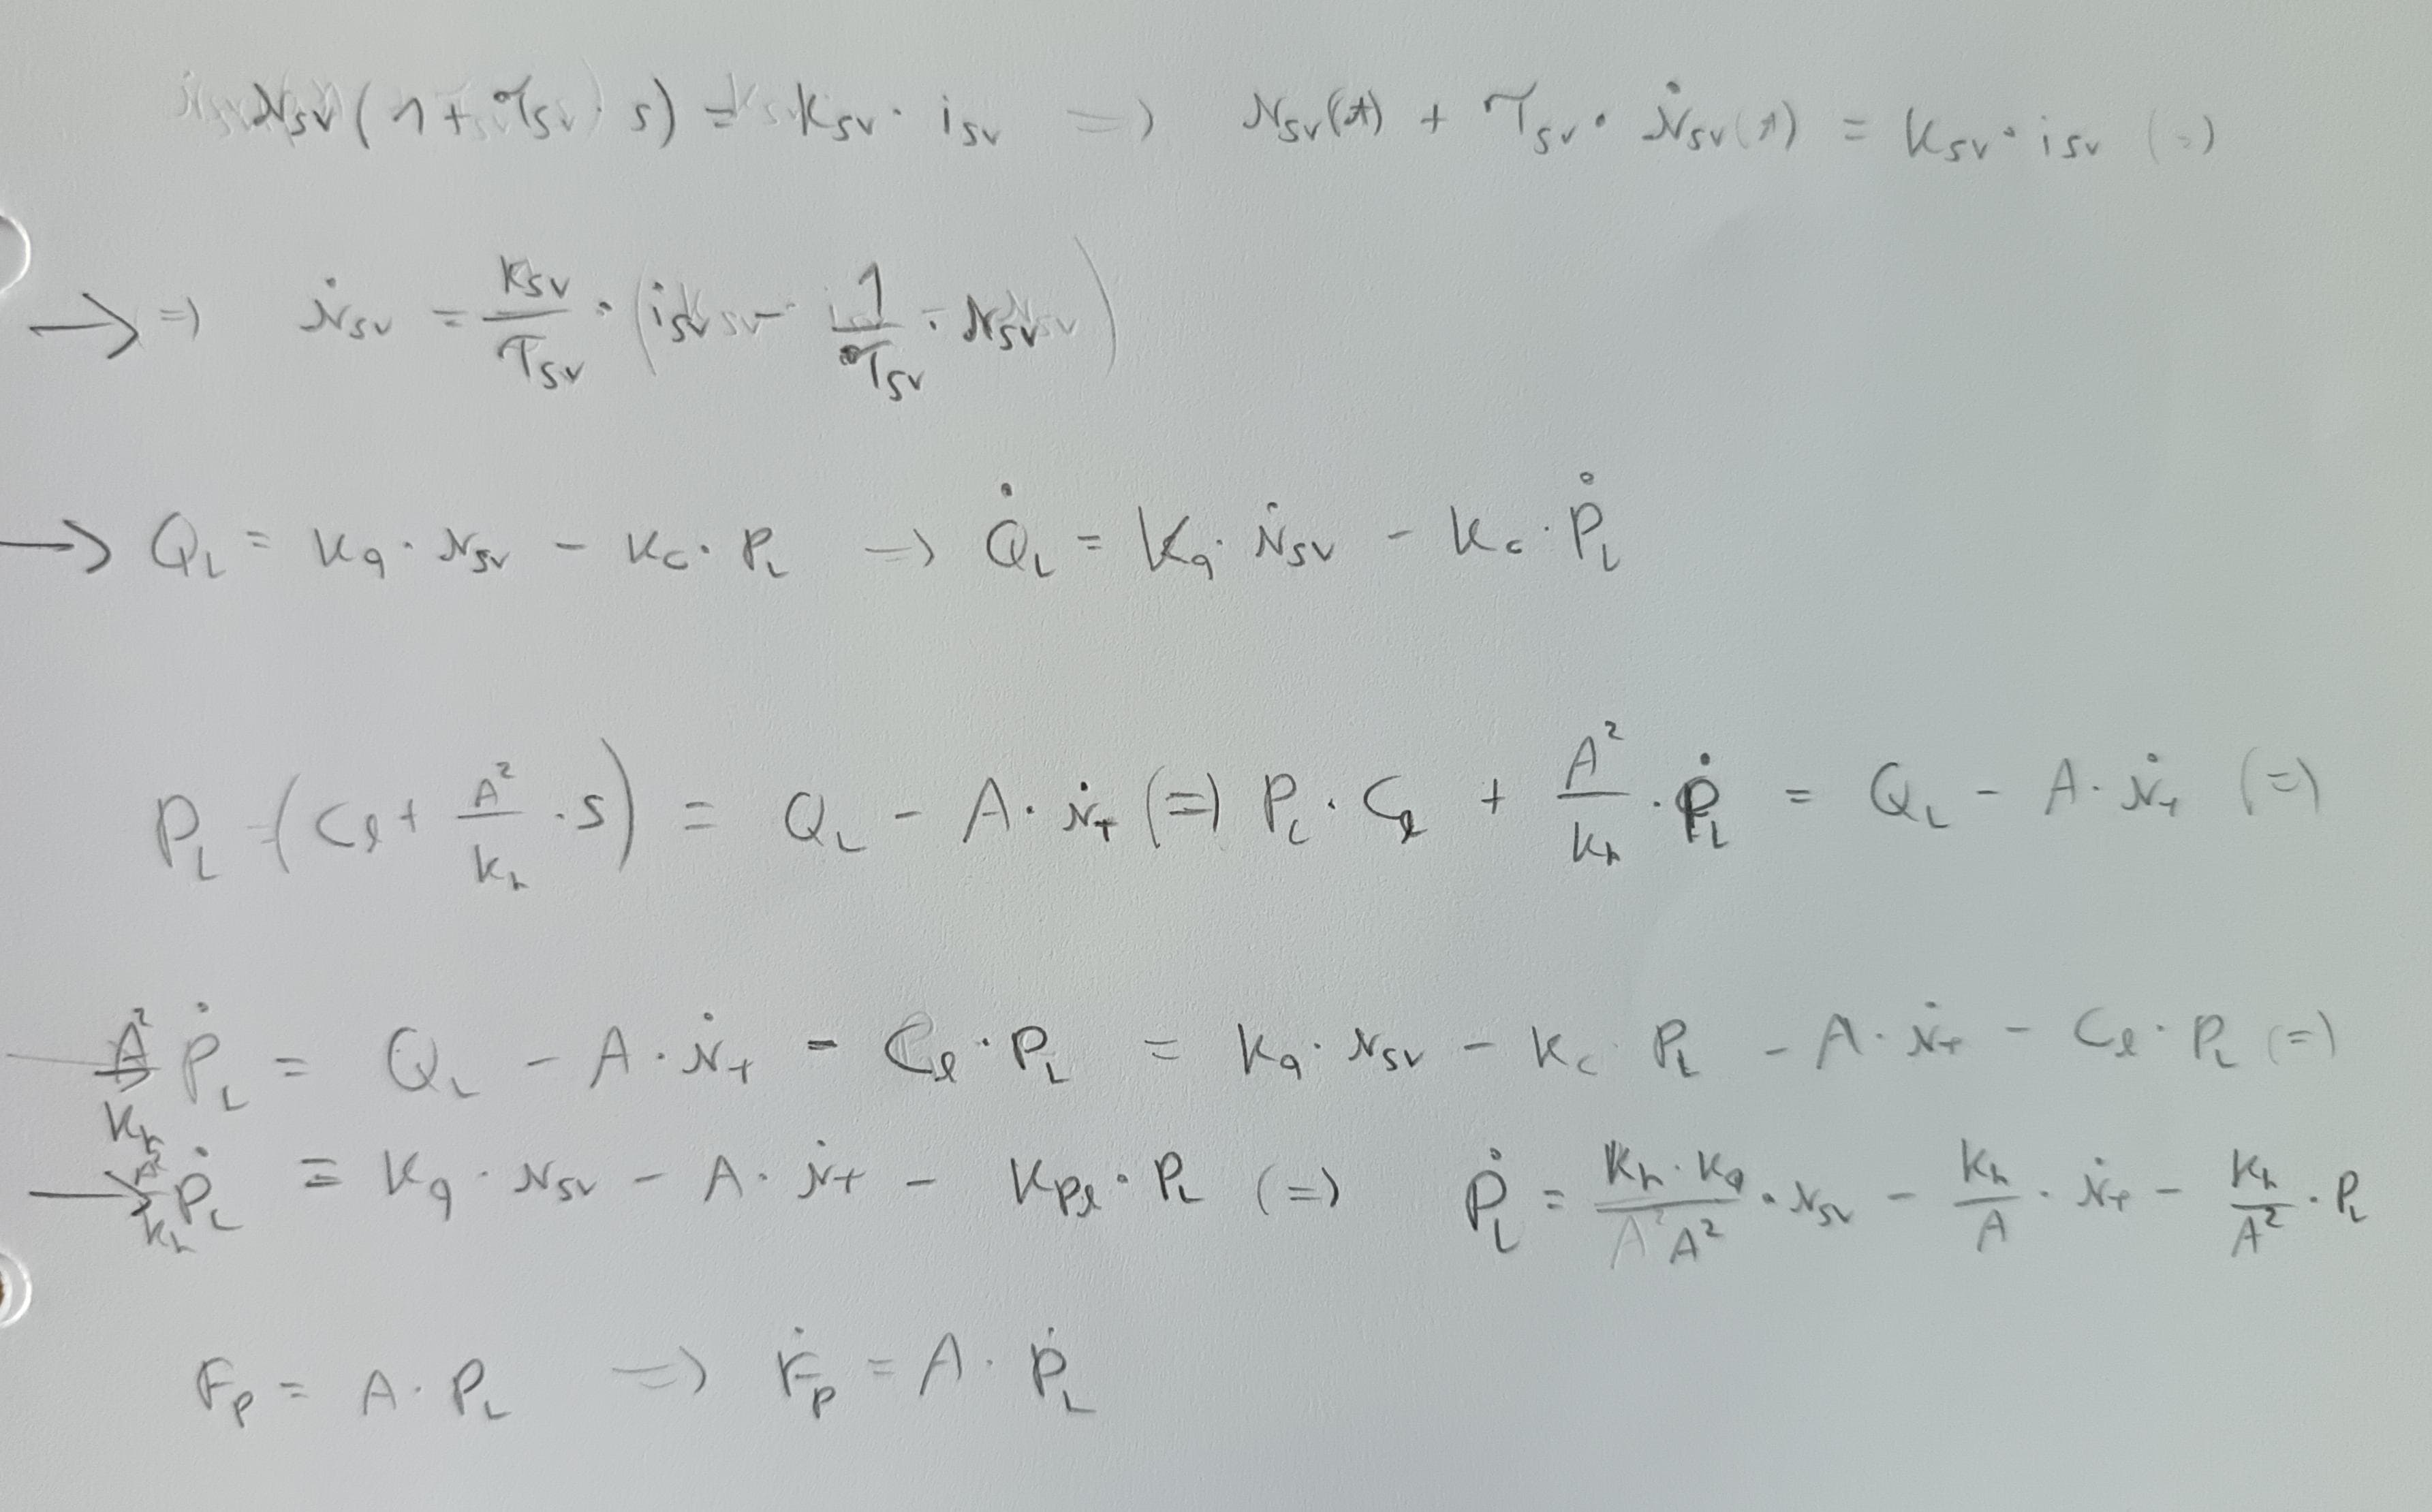 x_sv (1 + τ_sv · s) = k_sv · i_sv => x_sv(t) + τ_sv · ẋ_sv(t) = k_sv · i_sv (=)
→ => ẋ_sv = k_sv/τ_sv · (i_sv - 1/τ_sv · x_sv)
→ Q_L = K_q · x_sv - K_c · P_L => Q̇_L = K_q · ẋ_sv - K_c · Ṗ_L
P_L (C_l + A²/k_h · s) = Q_L - A · ẋ_T (=) P_L · C_l + A²/k_h · Ṗ_L = Q_L - A · ẋ_T (=)
A²/k_h Ṗ_L = Q_L - A · ẋ_T - C_l · P_L = K_q · x_sv - K_c · P_L - A · ẋ_T - C_l · P_L (=)
→ A²/k_h Ṗ_L = K_q · x_sv - A · ẋ_T - K_pl · P_L (=) Ṗ_L = k_h · K_q/A² · x_sv - k_h/A · ẋ_T - k_h/A² · P_L
F_p = A · P_L => Ḟ_p = A · Ṗ_L